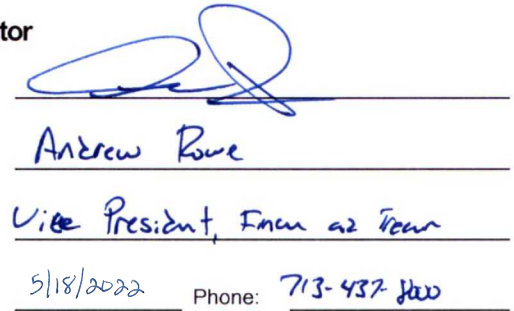 tor
Andrew Rowe
Vice President,
5/18/2022 Phone: 713-437-8000